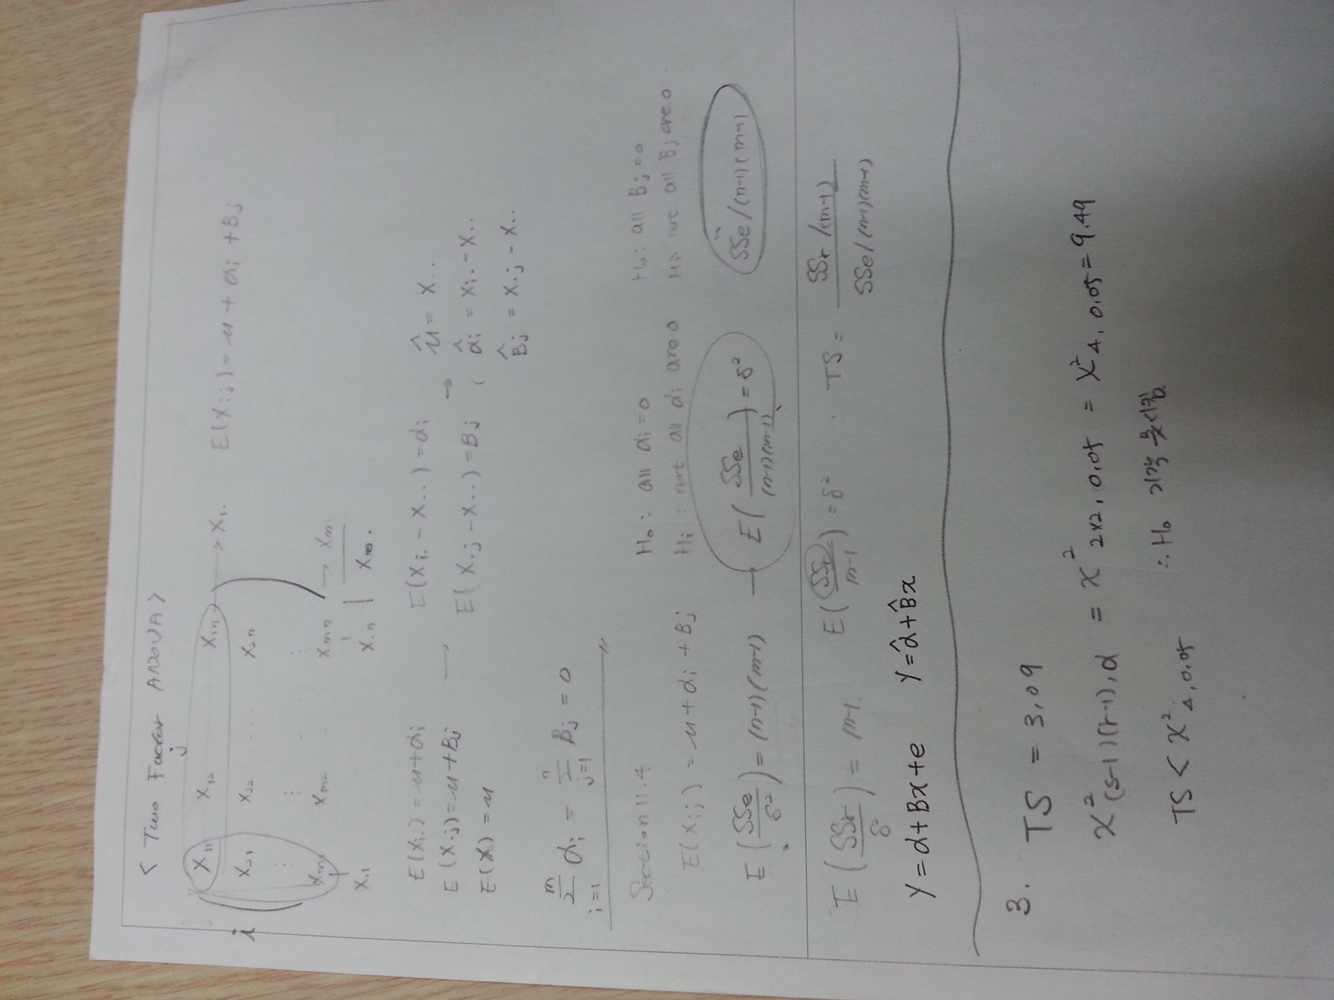 < Two Factor ANOVA >
j
X₁₁ X₁₂ X₁ₙ → X₁.
E(Xij) = μ + αi + Bj
i
X₂₁ X₂₂ ... X₂ₙ
⋮ ⋮ ⋮
Xm₁ Xm₂ ... Xmn → Xm.
X.₁ X.ₙ
E(Xi.) = μ+αi
E(X.j) = μ+Bj
E(X) = μ
→
E(Xi. - X..) = αi
E(X.j - X..) = Bj
→
μ̂ = X..
α̂i = Xi. - X..
B̂j = X.j - X..
m Σ i=1 αi = n Σ j=1 Bj = 0
Section 11.4
H₀ : all αi = 0
H₀ : all Bj = 0
E(Xij) = μ + αi + Bj
H₁ : not all αi are 0
H₁ : not all Bj are 0
E(SSe/δ²) = (n-1)(m-1) → E(SSe/(n-1)(m-1)) = δ²
SSe/(n-1)(m-1)
E(SSr/δ²) = m-1. E(SSr/m-1) = δ² TS = SSr/(m-1) / SSe/(n-1)(m-1)
Y = α+Bx+e Y = α̂+B̂x
3.
TS = 3.09
X²(s-1)(r-1), α = X²2x2, 0.05 = X²4, 0.05 = 9.49
TS < X²4, 0.05 ∴ H₀ 기각 못시킴.